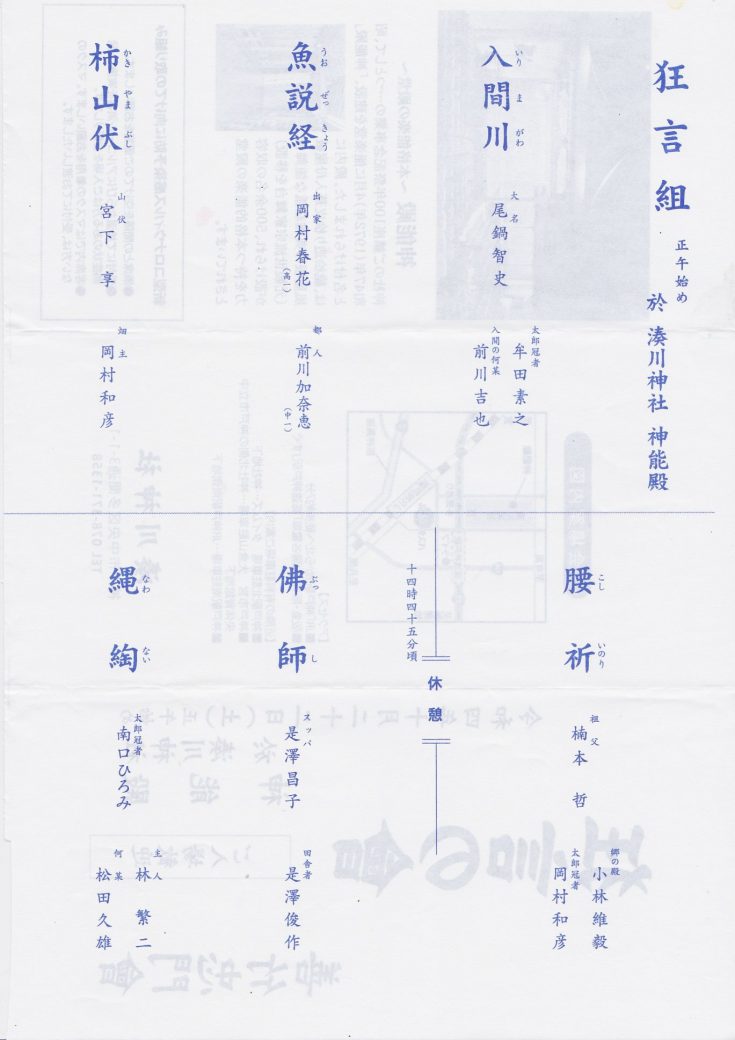 狂言組
正午始め
於 湊川神社 神能殿
入間川
いりまがわ
大名
尾鍋智史
太郎冠者
牟田素之
入間の何某
前川吉也
魚説経
うおぜっきょう
出家
岡村春花
(高一)
都人
前川加奈恵
(中一)
柿山伏
かきやまぶし
山伏
宮下 享
畑主
岡村和彦
腰祈
こしいのり
祖父
楠本 哲
郷の殿
小林維毅
太郎冠者
岡村和彦
十四時四十五分頃
休憩
佛師
ぶっし
スッパ
是澤昌子
田舎者
是澤俊作
縄綯
なわない
太郎冠者
南口ひろみ
主人
林 繁二
何某
松田久雄